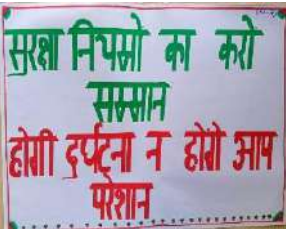 सुरक्षा नियमो का करो
सम्मान
होगी दुर्घटना न होंगे आप
परेशान